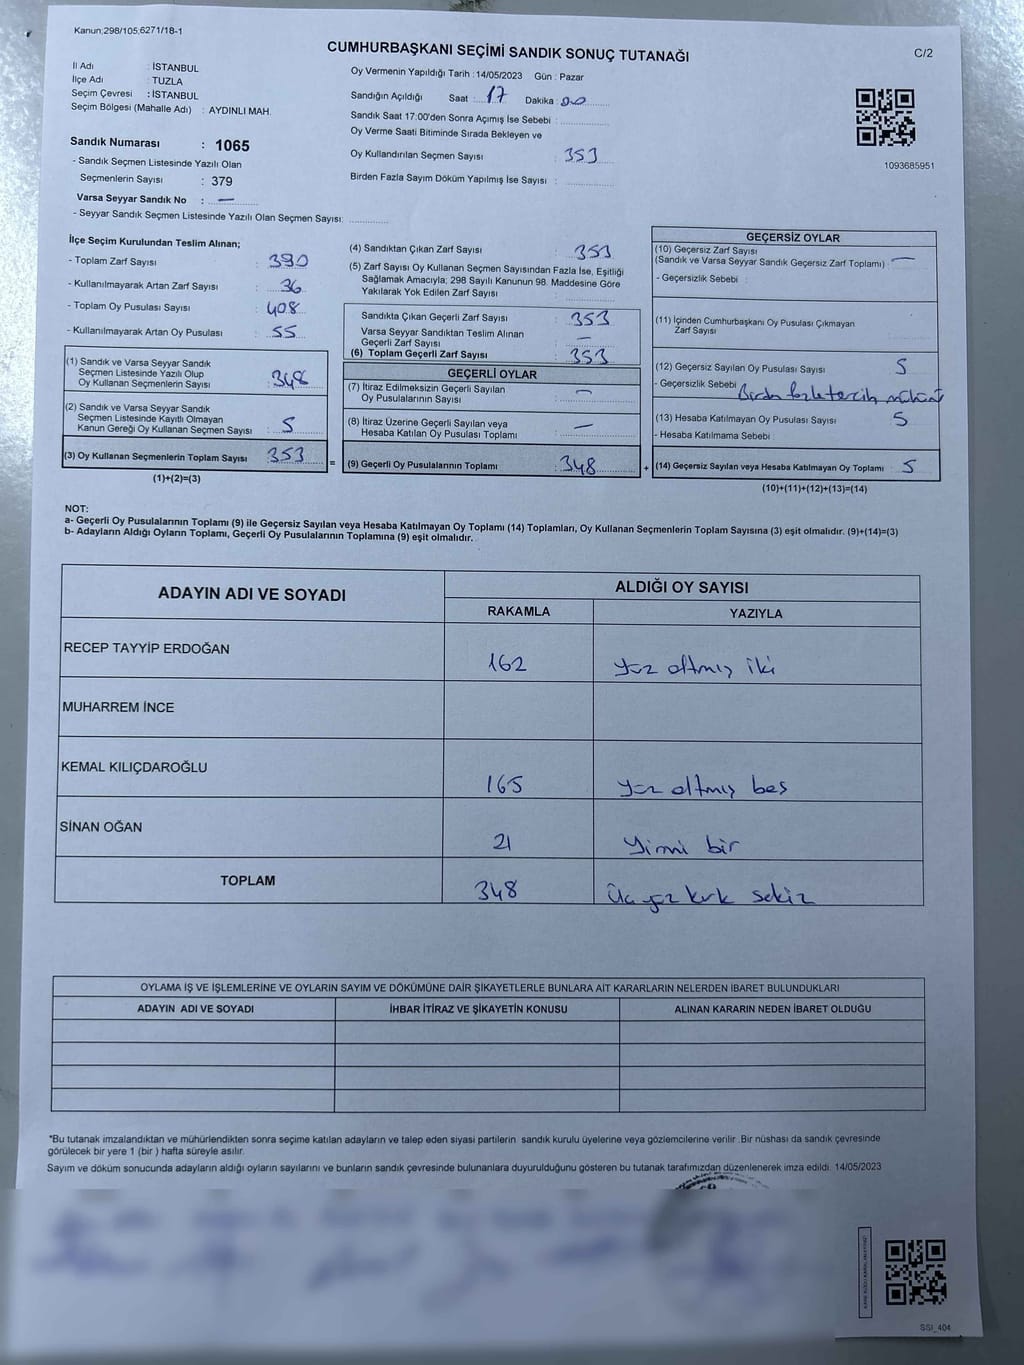 Kanun;298/105,6271/18-1
CUMHURBAŞKANI SEÇİMİ SANDIK SONUÇ TUTANAĞI
C/2
İl Adı : İSTANBUL
İlçe Adı : TUZLA
Seçim Çevresi : İSTANBUL
Seçim Bölgesi (Mahalle Adı) : AYDINLI MAH.
Sandık Numarası : 1065
- Sandık Seçmen Listesinde Yazılı Olan
Seçmenlerin Sayısı : 379
Varsa Seyyar Sandık No : —
- Seyyar Sandık Seçmen Listesinde Yazılı Olan Seçmen Sayısı:
Oy Vermenin Yapıldığı Tarih : 14/05/2023 Gün : Pazar
Sandığın Açıldığı Saat : 17 Dakika : 00
Sandık Saat 17:00'den Sonra Açımış İse Sebebi :
Oy Verme Saati Bitiminde Sırada Bekleyen ve
Oy Kullandırılan Seçmen Sayısı : 353
Birden Fazla Sayım Döküm Yapılmış İse Sayısı :
1093685951
İlçe Seçim Kurulundan Teslim Alınan;
- Toplam Zarf Sayısı : 390
- Kullanılmayarak Artan Zarf Sayısı : 36
- Toplam Oy Pusulası Sayısı : 408
- Kullanılmayarak Artan Oy Pusulası : 55
(1) Sandık ve Varsa Seyyar Sandık
Seçmen Listesinde Yazılı Olup
Oy Kullanan Seçmenlerin Sayısı : 348
(2) Sandık ve Varsa Seyyar Sandık
Seçmen Listesinde Kayıtlı Olmayan
Kanun Gereği Oy Kullanan Seçmen Sayısı : 5
(3) Oy Kullanan Seçmenlerin Toplam Sayısı : 353 =
(1)+(2)=(3)
(4) Sandıktan Çıkan Zarf Sayısı : 353
(5) Zarf Sayısı Oy Kullanan Seçmen Sayısından Fazla İse, Eşitliği
Sağlamak Amacıyla; 298 Sayılı Kanunun 98. Maddesine Göre
Yakılarak Yok Edilen Zarf Sayısı :
Sandıkta Çıkan Geçerli Zarf Sayısı : 353
Varsa Seyyar Sandıktan Teslim Alınan
Geçerli Zarf Sayısı : —
(6) Toplam Geçerli Zarf Sayısı : 353
GEÇERLİ OYLAR
(7) İtiraz Edilmeksizin Geçerli Sayılan
Oy Pusulalarının Sayısı : —
(8) İtiraz Üzerine Geçerli Sayılan veya
Hesaba Katılan Oy Pusulası Toplamı : —
(9) Geçerli Oy Pusulalarının Toplamı : 348 +
GEÇERSİZ OYLAR
(10) Geçersiz Zarf Sayısı
(Sandık ve Varsa Seyyar Sandık Geçersiz Zarf Toplamı) : —
- Geçersizlik Sebebi :
(11) İçinden Cumhurbaşkanı Oy Pusulası Çıkmayan
Zarf Sayısı
(12) Geçersiz Sayılan Oy Pusulası Sayısı : 5
- Geçersizlik Sebebi Birden fazla tercih mührü
(13) Hesaba Katılmayan Oy Pusulası Sayısı : 5
- Hesaba Katılmama Sebebi :
(14) Geçersiz Sayılan veya Hesaba Katılmayan Oy Toplamı : 5
(10)+(11)+(12)+(13)=(14)
NOT:
a- Geçerli Oy Pusulalarının Toplamı (9) ile Geçersiz Sayılan veya Hesaba Katılmayan Oy Toplamı (14) Toplamları, Oy Kullanan Seçmenlerin Toplam Sayısına (3) eşit olmalıdır. (9)+(14)=(3)
b- Adayların Aldığı Oyların Toplamı, Geçerli Oy Pusulalarının Toplamına (9) eşit olmalıdır.
ADAYIN ADI VE SOYADI
ALDIĞI OY SAYISI
RAKAMLA YAZIYLA
RECEP TAYYİP ERDOĞAN 162 yüz altmış iki
MUHARREM İNCE
KEMAL KILIÇDAROĞLU 165 yüz altmış beş
SİNAN OĞAN 21 Yirmi bir
TOPLAM 348 Üç yüz kırk sekiz
OYLAMA İŞ VE İŞLEMLERİNE VE OYLARIN SAYIM VE DÖKÜMÜNE DAİR ŞİKAYETLERLE BUNLARA AİT KARARLARIN NELERDEN İBARET BULUNDUKLARI
ADAYIN ADI VE SOYADI İHBAR İTİRAZ VE ŞİKAYETİN KONUSU ALINAN KARARIN NEDEN İBARET OLDUĞU
*Bu tutanak imzalandıktan ve mühürlendikten sonra seçime katılan adayların ve talep eden siyasi partilerin sandık kurulu üyelerine veya gözlemcilerine verilir .Bir nüshası da sandık çevresinde
görülecek bir yere 1 (bir ) hafta süreyle asılır.
Sayım ve döküm sonucunda adayların aldığı oyların sayılarını ve bunların sandık çevresinde bulunanlara duyurulduğunu gösteren bu tutanak tarafımızdan düzenlenerek imza edildi. 14/05/2023
SSI_404